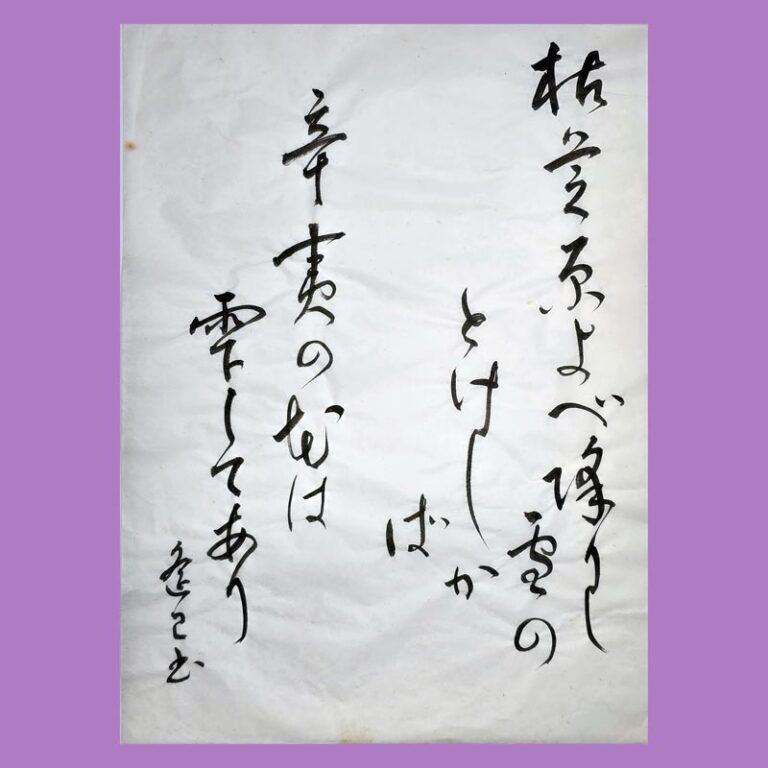 枯芝原よべ降りし
雪の
とけしか
ば
辛夷の花は
雫してあり